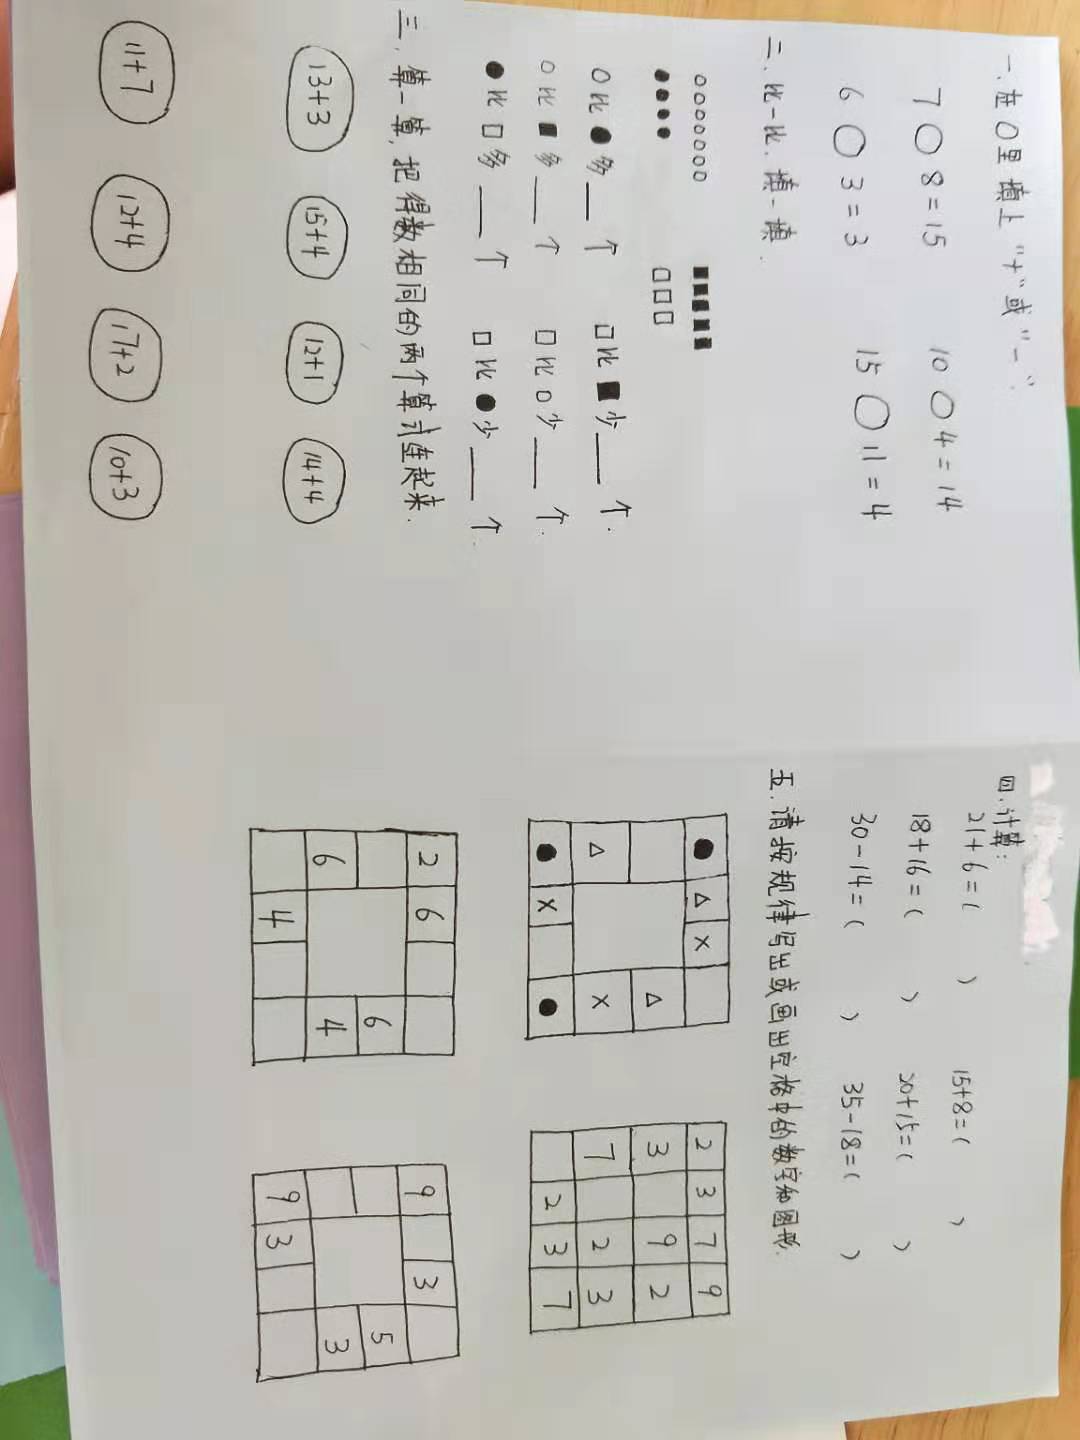 一.在○里填上"+"或"-".
7○8=15  10○4=14
6○3=3  15○11=4
二.比一比.填一填.
○○○○○○○  ■■■■■
●●●●  □□□
○比●多__个  □比■少__个.
○比■多__个  □比○少__个.
●比□多__个  □比●少__个.
三.算一算,把得数相同的两个算式连起来.
13+3  15+4  12+1  14+4
11+7  12+4  17+2  10+3
四.计算:
21+6=(  )  15+8=(  )
18+16=(  )  20+15=(  )
30-14=(  )  35-18=(  )
五.请按规律写出或画出空格中的数字和图形.
● △ ×  2 3 7 9
△  3 9 2
△ ×  7 2 3
● × ●  2 3 7
2 6  9 3
6  5
6 4  3
4  9 3